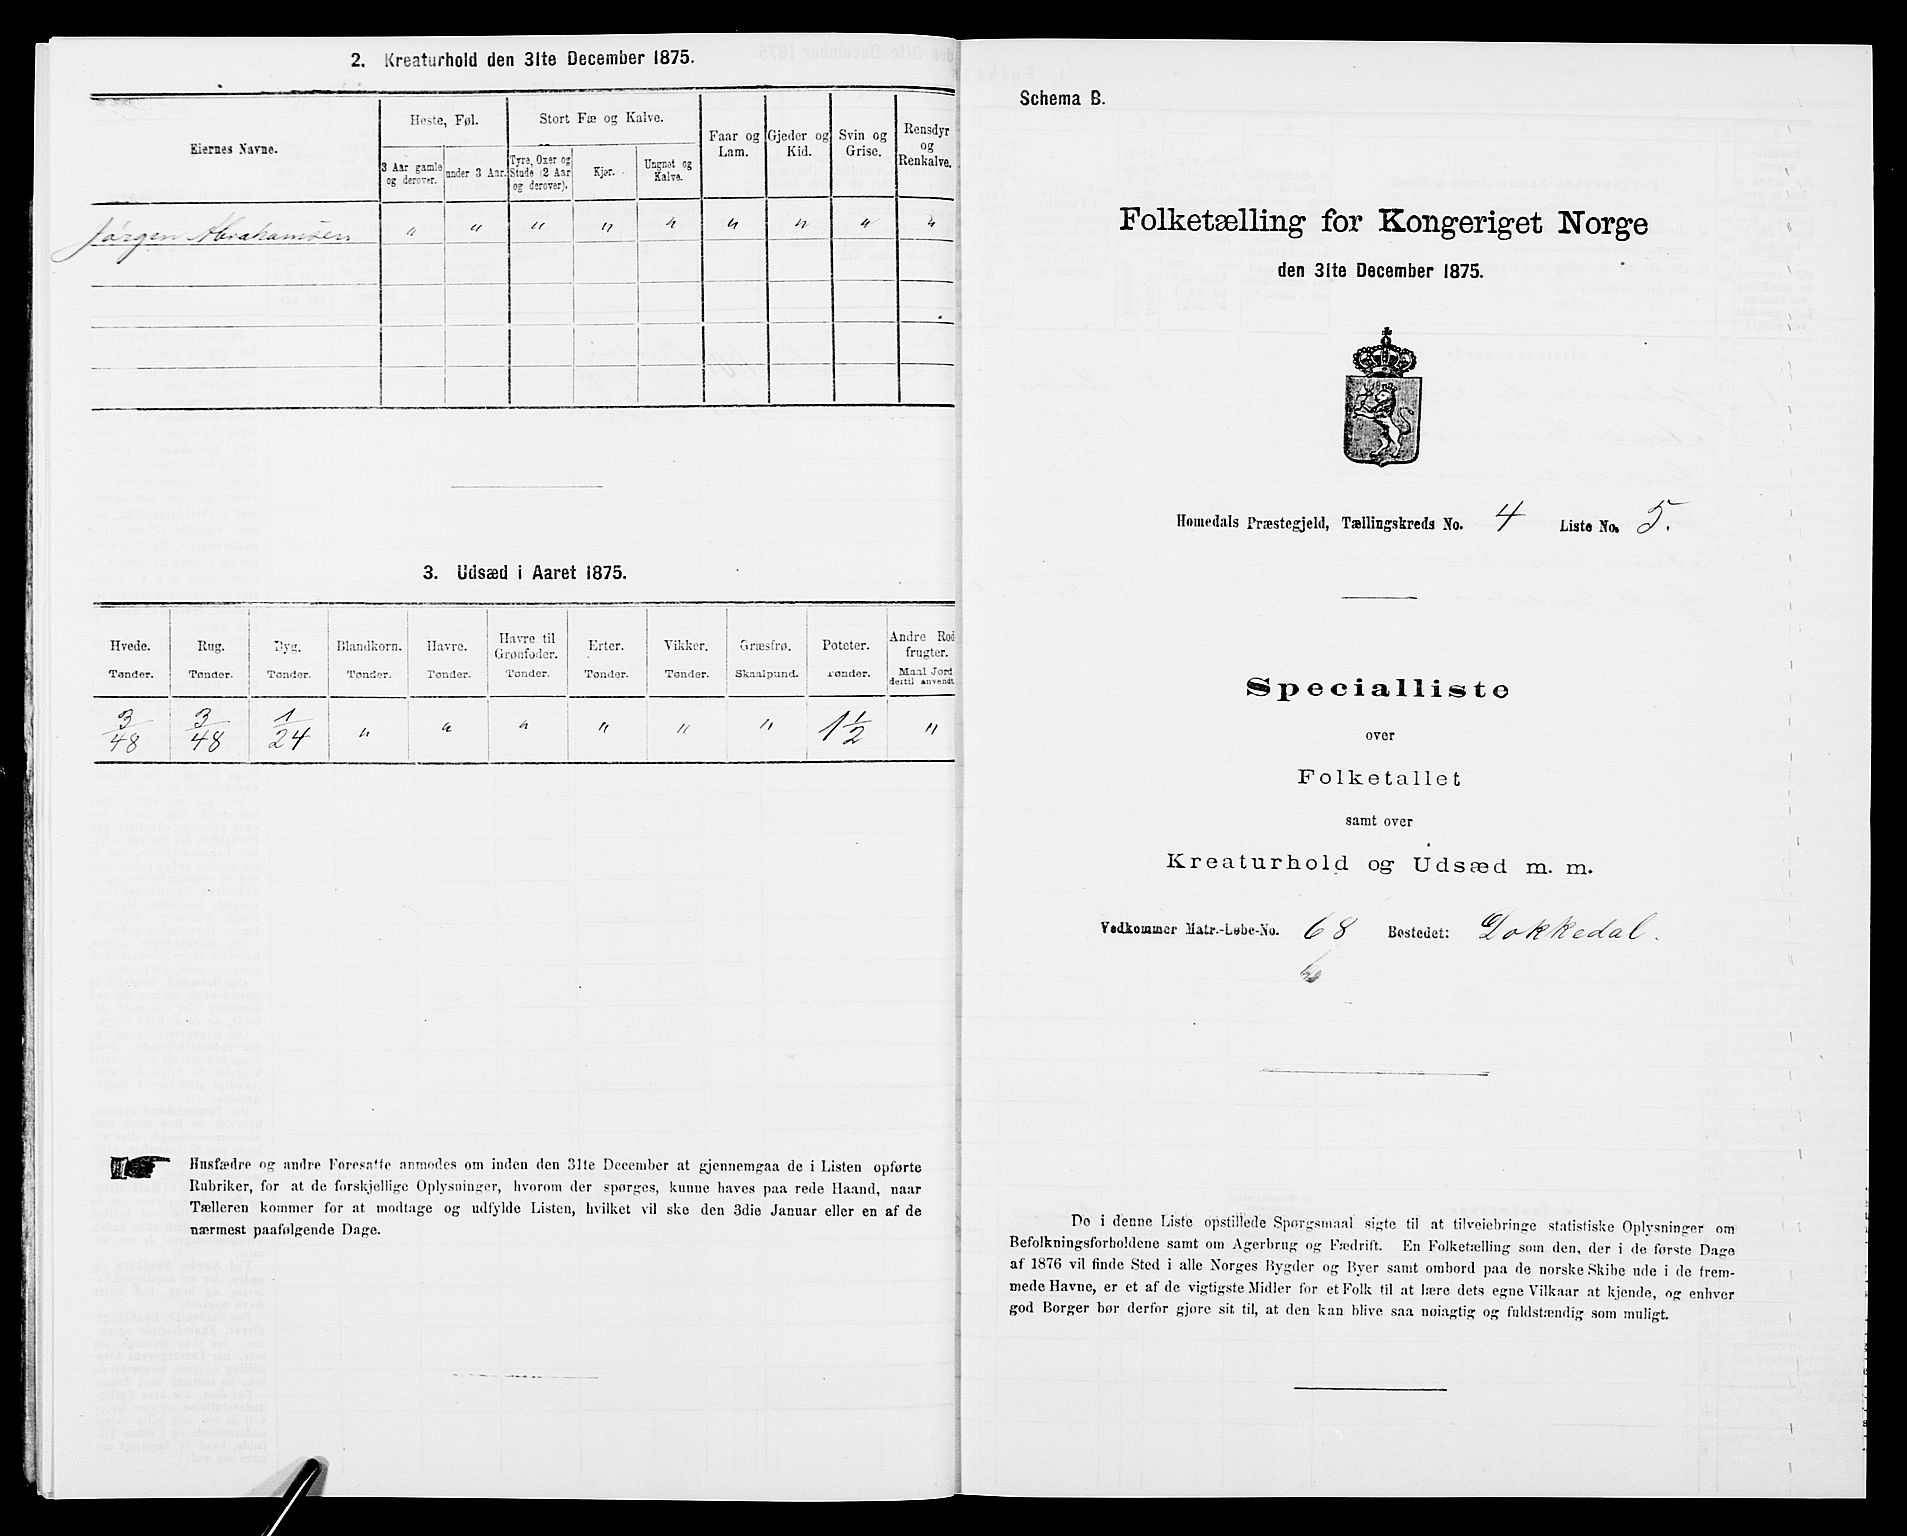 2. Kreaturhold den 31te December 1875.
Eiernes Navne.
Heste, Føl.
Stort Fæ og Kalve.
Faar og Lam.
Gjeder og Kid.
Svin og Grise.
Rensdyr og Renkalve.
3 Aar gamle og derover.
under 3 Aar.
Tyre, Oxer og Stude (2 Aar og derover).
Kjør.
Ungnøt og Kalve.
Jørgen Abrahamsen " " " " " " " " "
3. Udsæd i Aaret 1875.
Hvede. Rug. Byg. Blandkorn. Havre. Havre til Grønfoder. Erter. Vikker. Græsfrø. Poteter. Andre Rodfrugter.
Tønder. Tønder. Tønder. Tønder. Tønder. Tønder. Tønder. Tønder. Skaalpund. Tønder. Maal Jord dertil anvendt.
3/48 3/48 1/24 " " " " " " 1 1/2 "
Husfædre og andre Foresatte anmodes om inden den 31te December at gjennemgaa de i Listen opførte
Rubriker, for at de forskjellige Oplysninger, hvorom der spørges, kunne haves paa rede Haand, naar
Tælleren kommer for at modtage og udfylde Listen, hvilket vil ske den 3die Januar eller en af de
nærmest paafølgende Dage.
Schema B.
Folketælling for Kongeriget Norge
den 31te December 1875.
Homedals Præstegjeld, Tællingskreds No. 4 Liste No. 5.
Specialliste
over
Folketallet
samt over
Kreaturhold og Udsæd m. m.
Vedkommer Matr.-Løbe-No. 68 Bostedet: Dokkedal.
De i denne Liste opstillede Spørgsmaal sigte til at tilveiebringe statistiske Oplysninger om
Befolkningsforholdene samt om Agerbrug og Fædrift. En Folketælling som den, der i de første Dage
af 1876 vil finde Sted i alle Norges Bygder og Byer samt ombord paa de norske Skibe ude i de frem-
mede Havne, er et af de vigtigste Midler for et Folk til at lære dets egne Vilkaar at kjende, og enhver
god Borger bør derfor gjøre sit til, at den kan blive saa nøiagtig og fuldstændig som muligt.